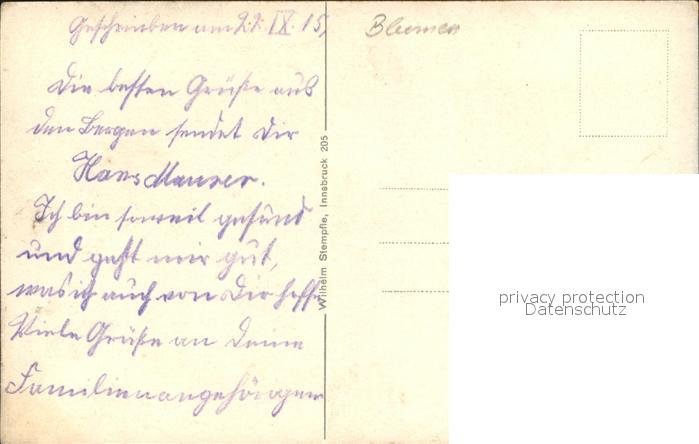 Geschrieben am 22. IX. 15,
Die besten Grüße aus
den Bergen sendet Dir
Hans Maurer.
Ich bin soweit gesund
und geht mir gut,
was ich auch von Dir hoffe
Viele Grüße an Deine
Familienangehörigen
Wilhelm Stempfle, Innsbruck 205
Blumen
privacy protection
Datenschutz